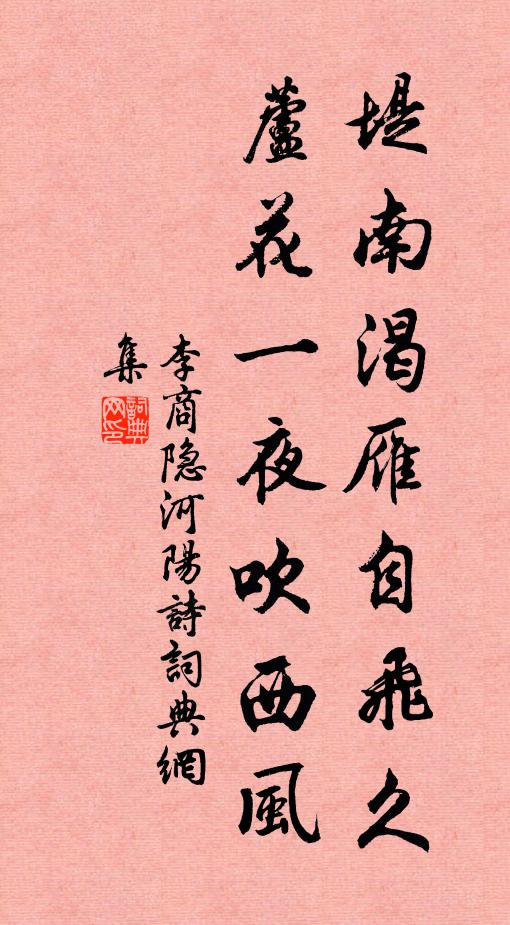 堤南渴雁自飛久
蘆花一夜吹西風
李商隐河陽詩詞典網
集
詞典网印